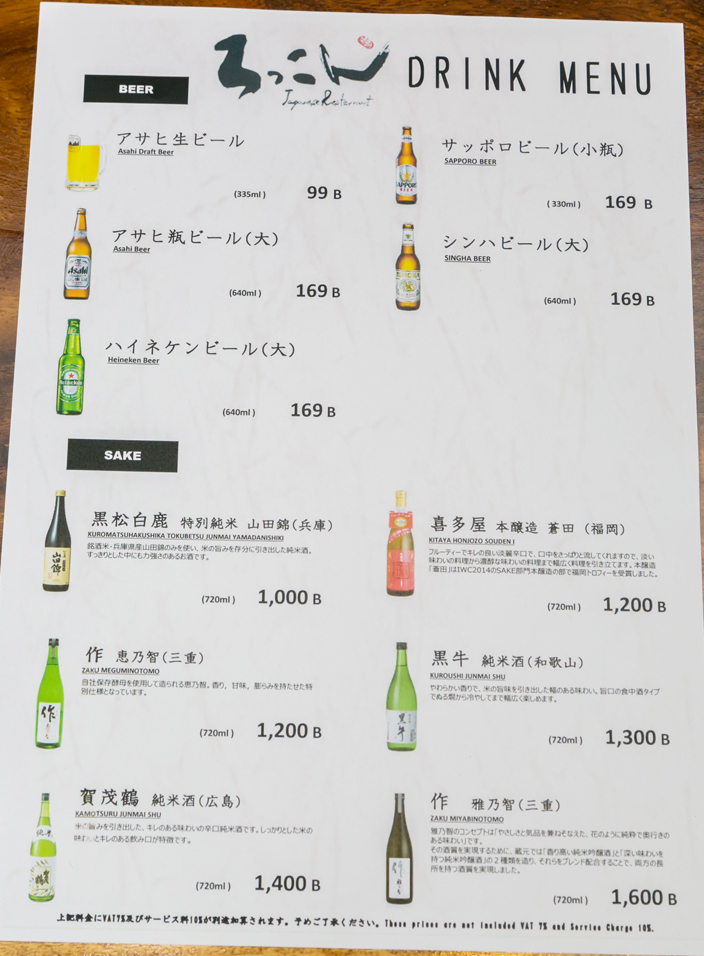 ろっこん
Japanese Restaurant
DRINK MENU
BEER
アサヒ生ビール
Asahi Draft Beer
(335ml) 99 B
サッポロビール(小瓶)
SAPPORO BEER
(330ml) 169 B
アサヒ瓶ビール(大)
Asahi Beer
(640ml) 169 B
シンハビール(大)
SINGHA BEER
(640ml) 169 B
ハイネケンビール(大)
Heineken Beer
(640ml) 169 B
SAKE
黒松白鹿 特別純米 山田錦(兵庫)
KUROMATSUHAKUSHIKA TOKUBETSU JUNMAI YAMADANISHIKI
銘酒米・兵庫県産山田錦のみを使い、米の旨みを存分に引き出した純米酒。
すっきりとした中にも力強さのあるお酒です。
(720ml) 1,000 B
喜多屋 本醸造 蒼田 (福岡)
KITAYA HONJOZO SOUDEN I
フルーティーでキレの良い淡麗辛口で、口中をさっぱりと流してくれますので、淡い
味わいの料理から濃醇な味わいの料理まで幅広く料理を引き立てます。本醸造
「蒼田」はIWC2014のSAKE部門本醸造の部で福岡トロフィーを受賞しました。
(720ml) 1,200 B
作 恵乃智(三重)
ZAKU MEGUMINOTOMO
自社保存酵母を使用して造られる恵乃智。香り、甘味、膨らみを持たせた特
別仕様となっています。
(720ml) 1,200 B
黒牛 純米酒(和歌山)
KUROUSHI JUNMAI SHU
やわらかい香りで、米の旨味を引き出した幅のある味わい。旨口の食中酒タイプ
でぬる燗から冷やしてまで幅広く楽しめます。
(720ml) 1,300 B
賀茂鶴 純米酒(広島)
KAMOTSURU JUNMAI SHU
米の旨みを引き出した、キレのある味わいの辛口純米酒です。しっかりとした米の
味わいとキレのある飲み口が特徴です。
(720ml) 1,400 B
作 雅乃智(三重)
ZAKU MIYABINOTOMO
雅乃智のコンセプトは「やさしさと気品を兼ねそなえた、花のように純粋で奥行きの
ある味わい」です。
その酒質を実現するために、蔵元では「香り高い純米吟醸酒」と「深い味わいを
持つ純米吟醸酒」の2種類を造り、それらをブレンド配合することで、両方の長
所を持つ酒質を実現しました。
(720ml) 1,600 B
上記料金にVAT7%及びサービス料10%が別途加算されます。予めご了承ください。These prices are not included VAT 7% and Service Charge 10%.